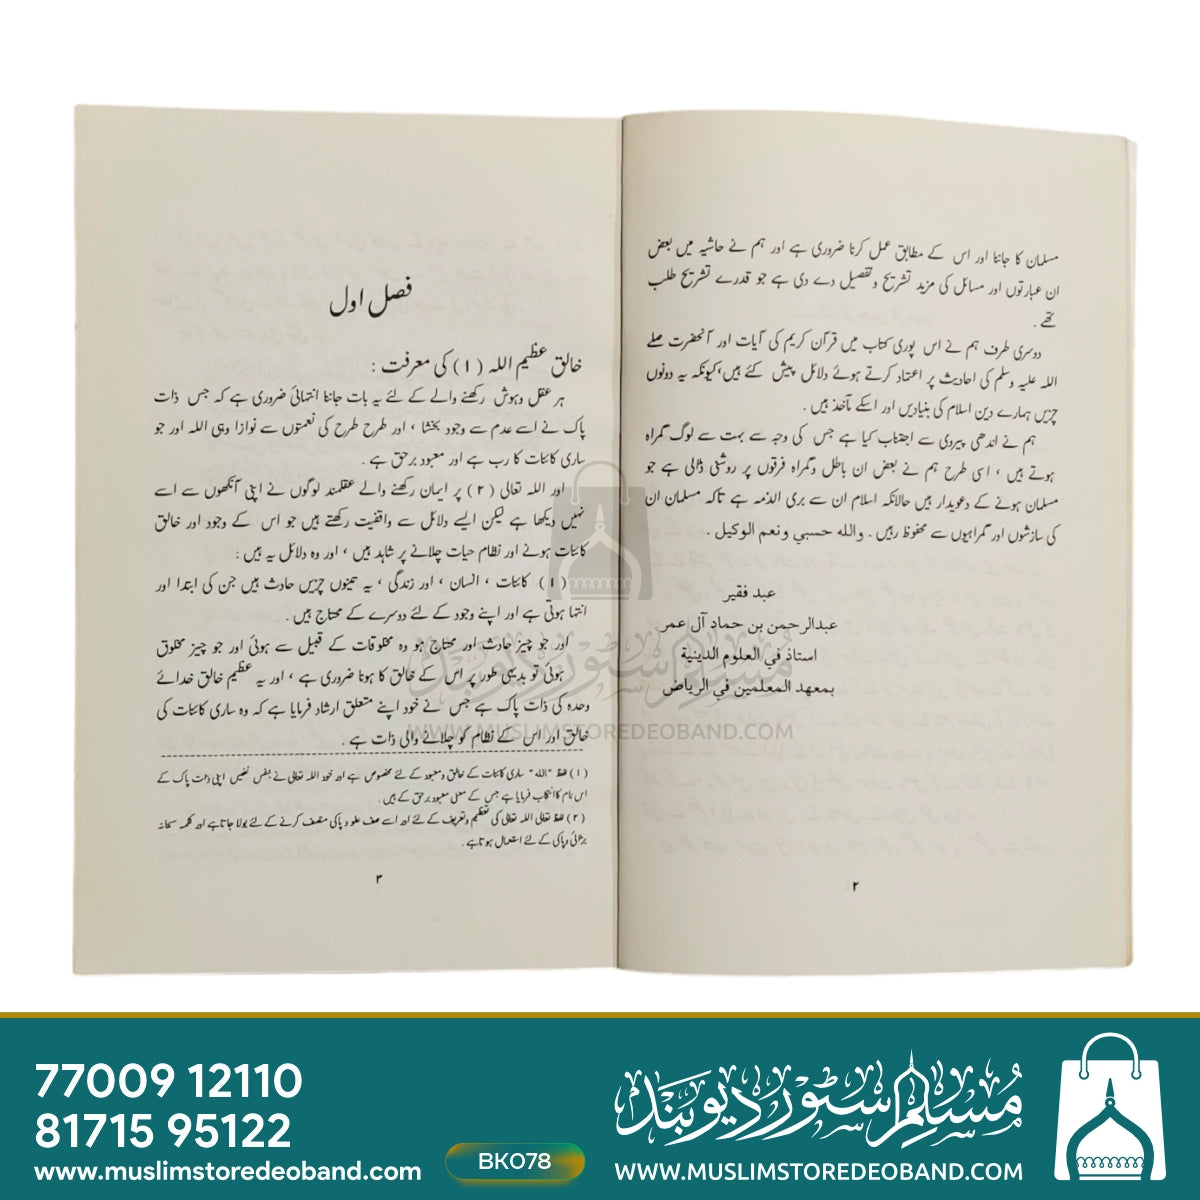 مسلمان کا جاننا اور اس کے مطابق عمل کرنا ضروری ہے اور ہم نے حاشیہ میں بعض
ان عبارتوں اور مسائل کی مزید تشریح وتفصیل دے دی ہے جو قدرے تشریح طلب
تھے .
دوسری طرف ہم نے اس پوری کتاب میں قرآن کریم کی آیات اور آنحضرت صلے
اللہ علیہ وسلم کی احادیث پر اعتماد کرتے ہوئے دلائل پیش کئے ہیں، کیونکہ یہ دونوں
چیزیں ہمارے دین اسلام کی بنیادیں اور اسکے مآخذ ہیں .
ہم نے اندھی پیروی سے اجتناب کیا ہے جس کی وجہ سے بہت سے لوگ گمراہ
ہوتے ہیں ، اسی طرح ہم نے بعض ان باطل وگمراہ فرقوں پر روشنی ڈالی ہے جو
مسلمان ہونے کے دعویدار ہیں حالانکہ اسلام ان سے بری الذمہ ہے تاکہ مسلمان ان
کی سازشوں اور گمراہیوں سے محفوظ رہیں . والله حسبي ونعم الوكيل .
عبد فقير
عبدالرحمن بن حماد آل عمر
استاذ في العلوم الدينية
بمعهد المعلمين في الرياض
۲
فصل اول
خالق عظیم اللہ (۱) کی معرفت :
ہر عقل وہوش رکھنے والے کے لئے یہ بات جاننا انتہائی ضروری ہے کہ جس ذات
پاک نے اسے عدم سے وجود بخشا ، اور طرح طرح کی نعمتوں سے نوازا وہی اللہ اور جو
ساری کائنات کا رب ہے اور معبود برحق ہے .
اور اللہ تعالی (۲) پر ایمان رکھنے والے عقلمند لوگوں نے اپنی آنکھوں سے اسے
نہیں دیکھا ہے لیکن ایسے دلائل سے واقفیت رکھتے ہیں جو اس کے وجود اور خالق
کائنات ہونے اور نظام حیات چلانے پر شاہد ہیں ، اور وہ دلائل یہ ہیں :
(۱) کائنات ، انسان ، اور زندگی ، یہ تینوں چیزیں حادث ہیں جن کی ابتدا اور
انتہا ہوتی ہے اور اپنے وجود کے لئے دوسرے کے محتاج ہیں .
اور جو چیز حادث اور محتاج ہو وہ مخلوقات کے قبیل سے ہوئی اور جو چیز مخلوق
ہوئی تو بدیہی طور پر اس کے خالق کا ہونا ضروری ہے ، اور یہ عظیم خالق خدائے
وحدہ کی ذات پاک ہے جس نے خود اپنے متعلق ارشاد فرمایا ہے کہ وہ ساری کائنات کی
خالق اور اس کے نظام کو چلانے والی ذات ہے .
(۱) لفظ "اللہ" ساری کائنات کے خالق ومعبود کے لئے مخصوص ہے اور خود اللہ تعالی نے بنفس نفیس اپنی ذات پاک کے
اس نام کا انتخاب فرمایا ہے جس کے معنی معبود برحق کے ہیں .
(۲) لفظ تعالی اللہ تعالی کی تعظیم وتعریف کے لئے اور اسے صفت علو وپاکی متصف کرنے کے لئے بولا جاتا ہے اور کلمہ سبحانہ
بڑائی وپاکی کے لئے استعمال ہوتا ہے .
۳
مسلم سٹور دیوبند
WWW.MUSLIMSTOREDEOBAND.COM
77009 12110
81715 95122
www.muslimstoredeoband.com
BK078
مسلم سٹور دیوبند
WWW.MUSLIMSTOREDEOBAND.COM